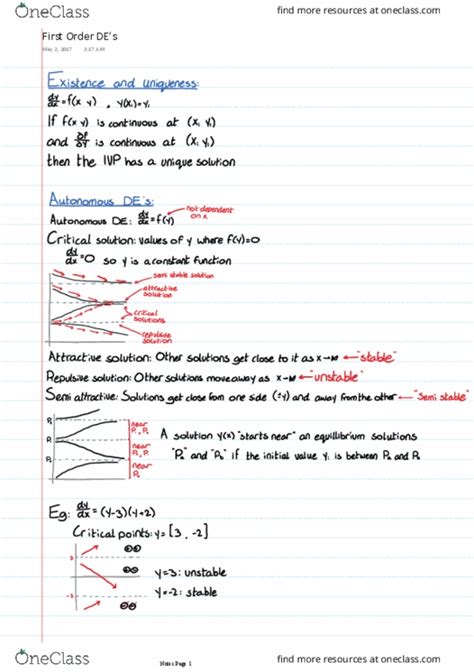 OneClass
find more resources at oneclass.com
First Order DE's
May 2, 2017
Existence and uniqueness:
dy/dx = f(x y) , y(x₁)=y₁
If f(x y) is continuous at (x₁ y₁)
and ∂f/∂y is continuous at (x₁ y₁)
then the IVP has a unique solution
Autonomous DE's:
not dependent on x
Autonomous DE: dy/dx = f(y)
Critical solution: values of y where f(y)=0
dy/dx = 0 so y is a constant function
semi stable solution
attractive solution
critical solutions
repulsive solution
Attractive solution: Other solutions get close to it as x→∞ ← "stable"
Repulsive solution: Other solutions move away as x→∞ ← "unstable"
Semi attractive: Solutions get close from one side (±y) and away from the other ← "Semi stable"
near
near
near
A solution y(x) "starts near" an equillibrium solutions
if the initial value y₁ is between
Eg: dy/dx = (y-3)(y+2)
Critical points: y = [3, -2]
3
y=3: unstable
y=-2: stable
Notes Page 1
OneClass
find more resources at oneclass.com